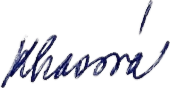 Khasová